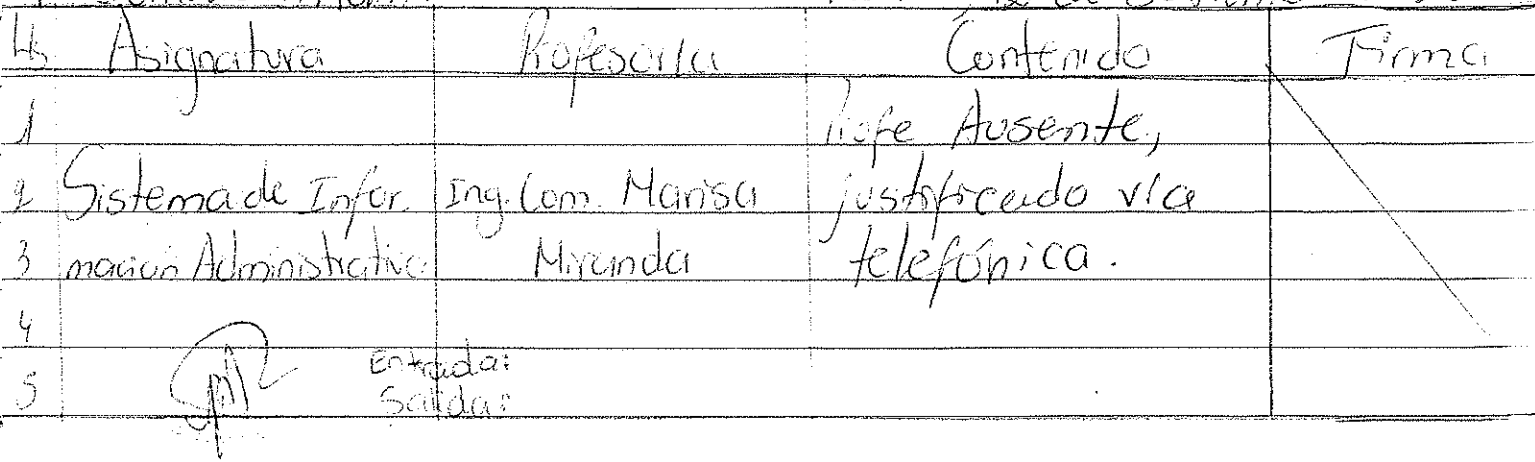 Hs Asignatura Profesor/a Contenido Firma
1 Profe Ausente,
2 Sistema de Infor. Ing. Com. Marisa justificado vía
3 mación Administrativa Miranda telefónica.
4
5 Entrada:
Salida: